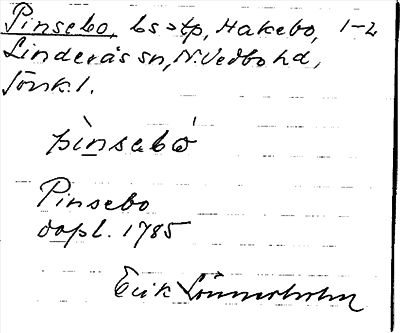 Pinsebo, bs o tp, Hakebo, 1-2
Linderås sn, N. Vedbo hd,
Jönk. l.
pìnsebó
Pinsebo
dopl. 1785
Erik Lönnerholm